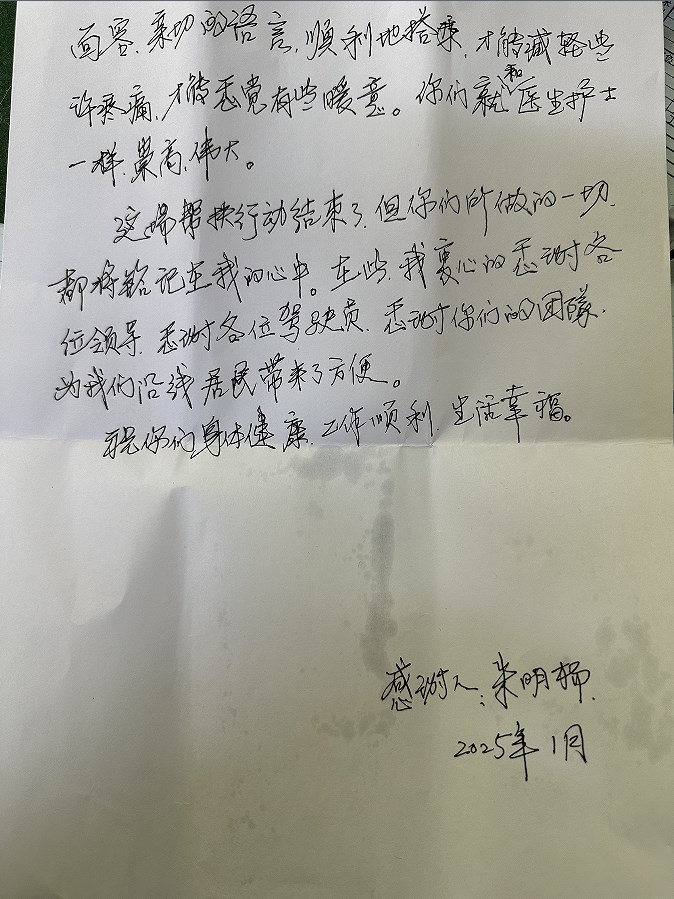 面容,亲切的语言,顺利地搭乘,才能减轻些
许疼痛,才能感觉有些暖意。你们就和医生护士
一样,崇高,伟大。
这场帮扶行动结束了,但你们所做的一切,
都将铭记在我的心中。在此,我衷心的感谢各
位领导,感谢各位驾驶员,感谢你们的团隊,
为我们沿线居民带来了方便。
祝你们身体健康,工作顺利,生活幸福。
感谢人:朱明
2025年1月